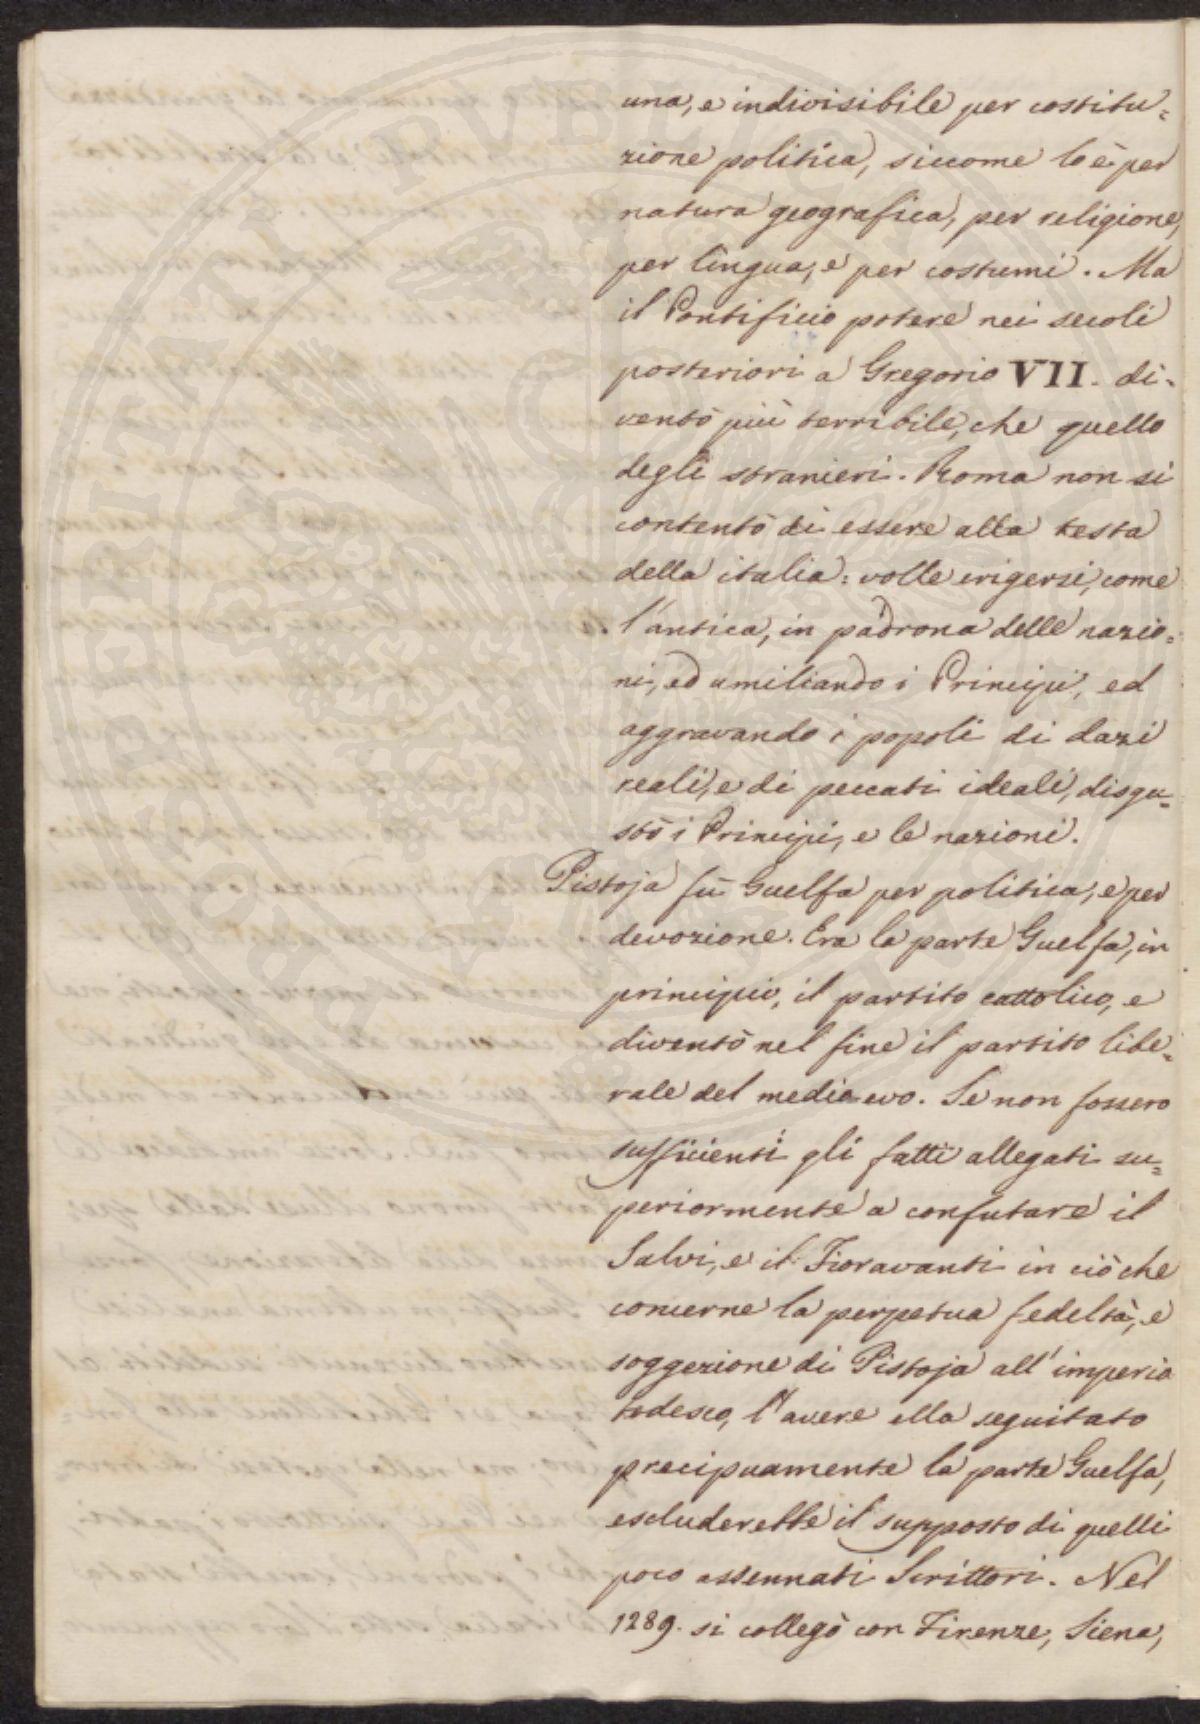 una, e indivisibile per costitu=
zione politica, siccome lo è per
natura geografica, per religione,
per lingua, e per costumi. Ma
il Pontificio potere nei secoli
posteriori a Gregorio VII. di=
ventò più terribile, che quello
degli stranieri. Roma non si
contentò di essere alla testa
della italia: volle erigersi, come
l'antica, in padrona delle nazio=
ni, ed umiliando i Principi, ed
aggravando i popoli di dazi
reali, e di peccati ideali, disgu=
stò i Principi, e le nazioni.
Pistoja fù Guelfa per politica, e per
devozione. Era la parte Guelfa, in
principio, il partito cattolico, e
diventò nel fine il partito libe=
rale del medio evo. Se non fossero
sufficienti gli fatti allegati su=
periormente a confutare il
Salvi, e il Fioravanti in ciò che
concerne la perpetua fedeltà, e
soggezione di Pistoja all'imperio
tedesco, l'avere ella seguitato
precipuamente la parte Guelfa,
escluderebbe il supposto di quelli
poco assennati Scrittori. Nel
1289. si collegò con Firenze, Siena,